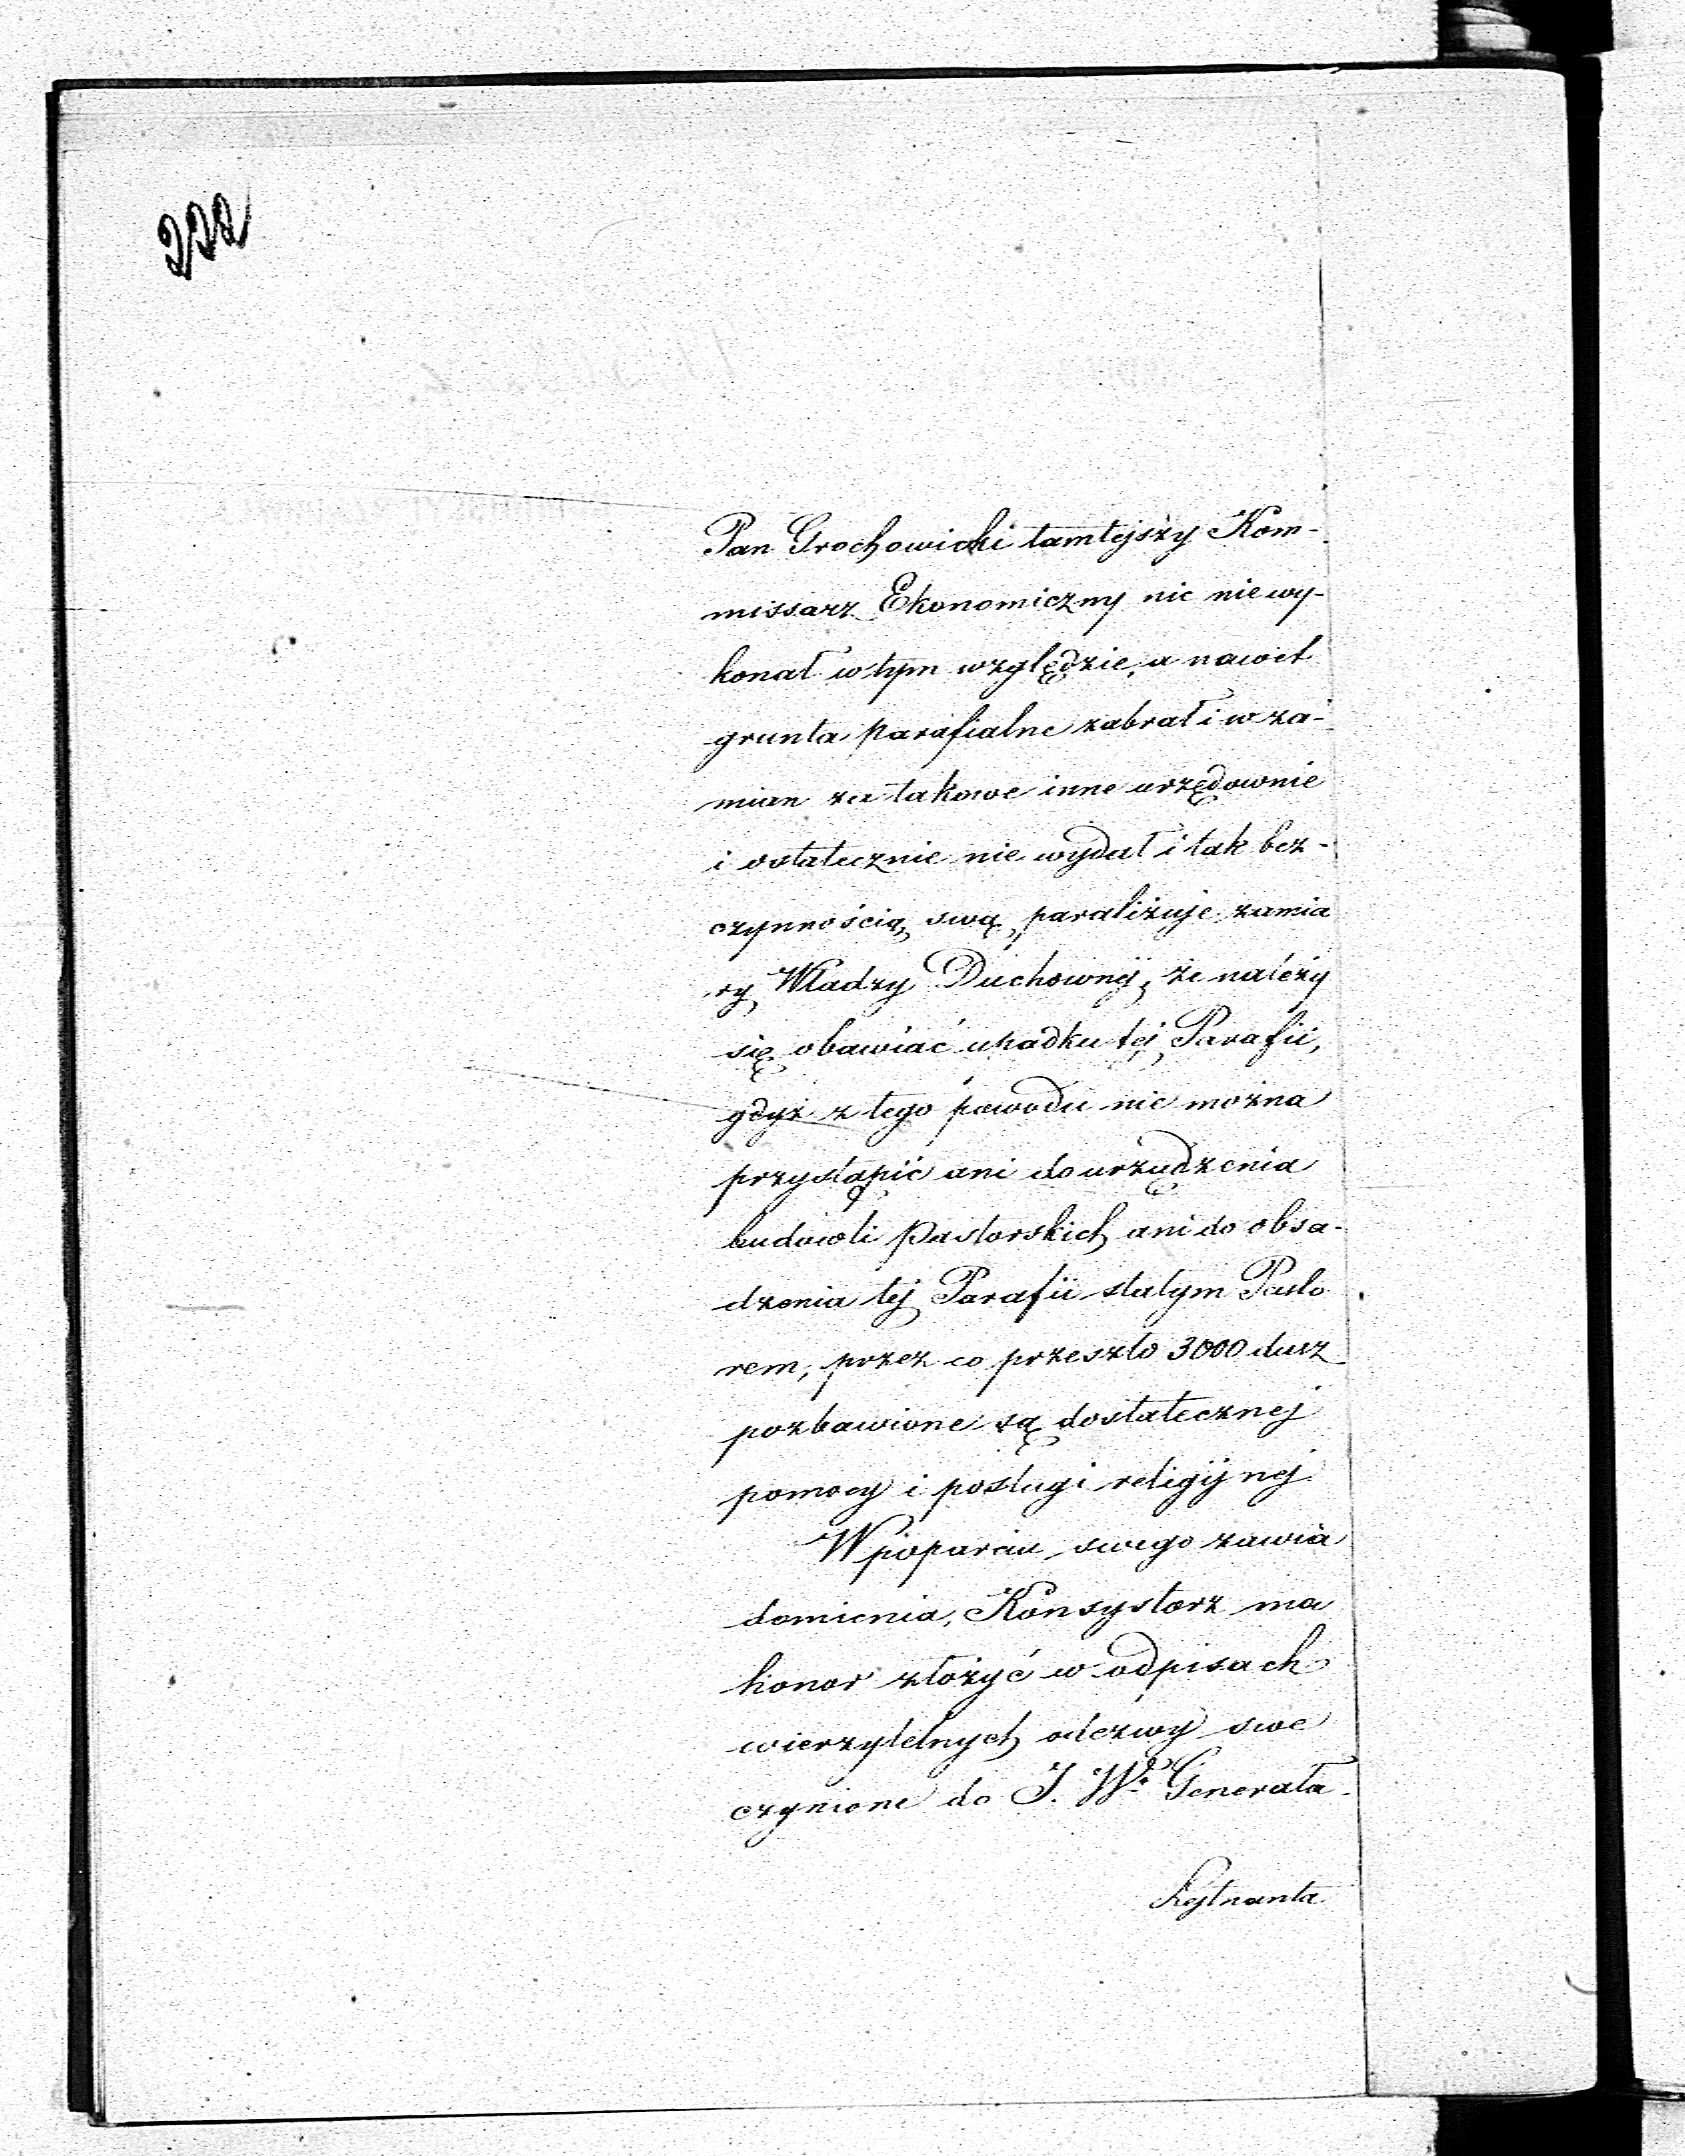 222
Pan Grochowicki tamtejszy Kom-
missarz Ekonomiczny nic nie wy-
konał w tym względzie, a nawet
grunta parafialne zabrał i w za-
mian za takowe inne urzędownie
i ostatecznie nie wydał i tak bez-
czynnością swą paraliżuje zamia
ry Władzy Duchownej, że należy
się obawiać upadku tej Parafii,
gdyż z tego powodu nie można
przystąpić ani do urządzenia
budowli Pastorskich ani do obsa-
dzenia tej Parafii stałym Pasto
rem, przez co przeszło 3000 dusz
pozbawione są dostatecznej
pomocy i posługi religijnej.
W poparciu swego zawia
domienia, Konsystorz ma
honor złożyć w odpisach
wierzytelnych odezwy swe
czynione do J. Wo Generała
Lejtnanta